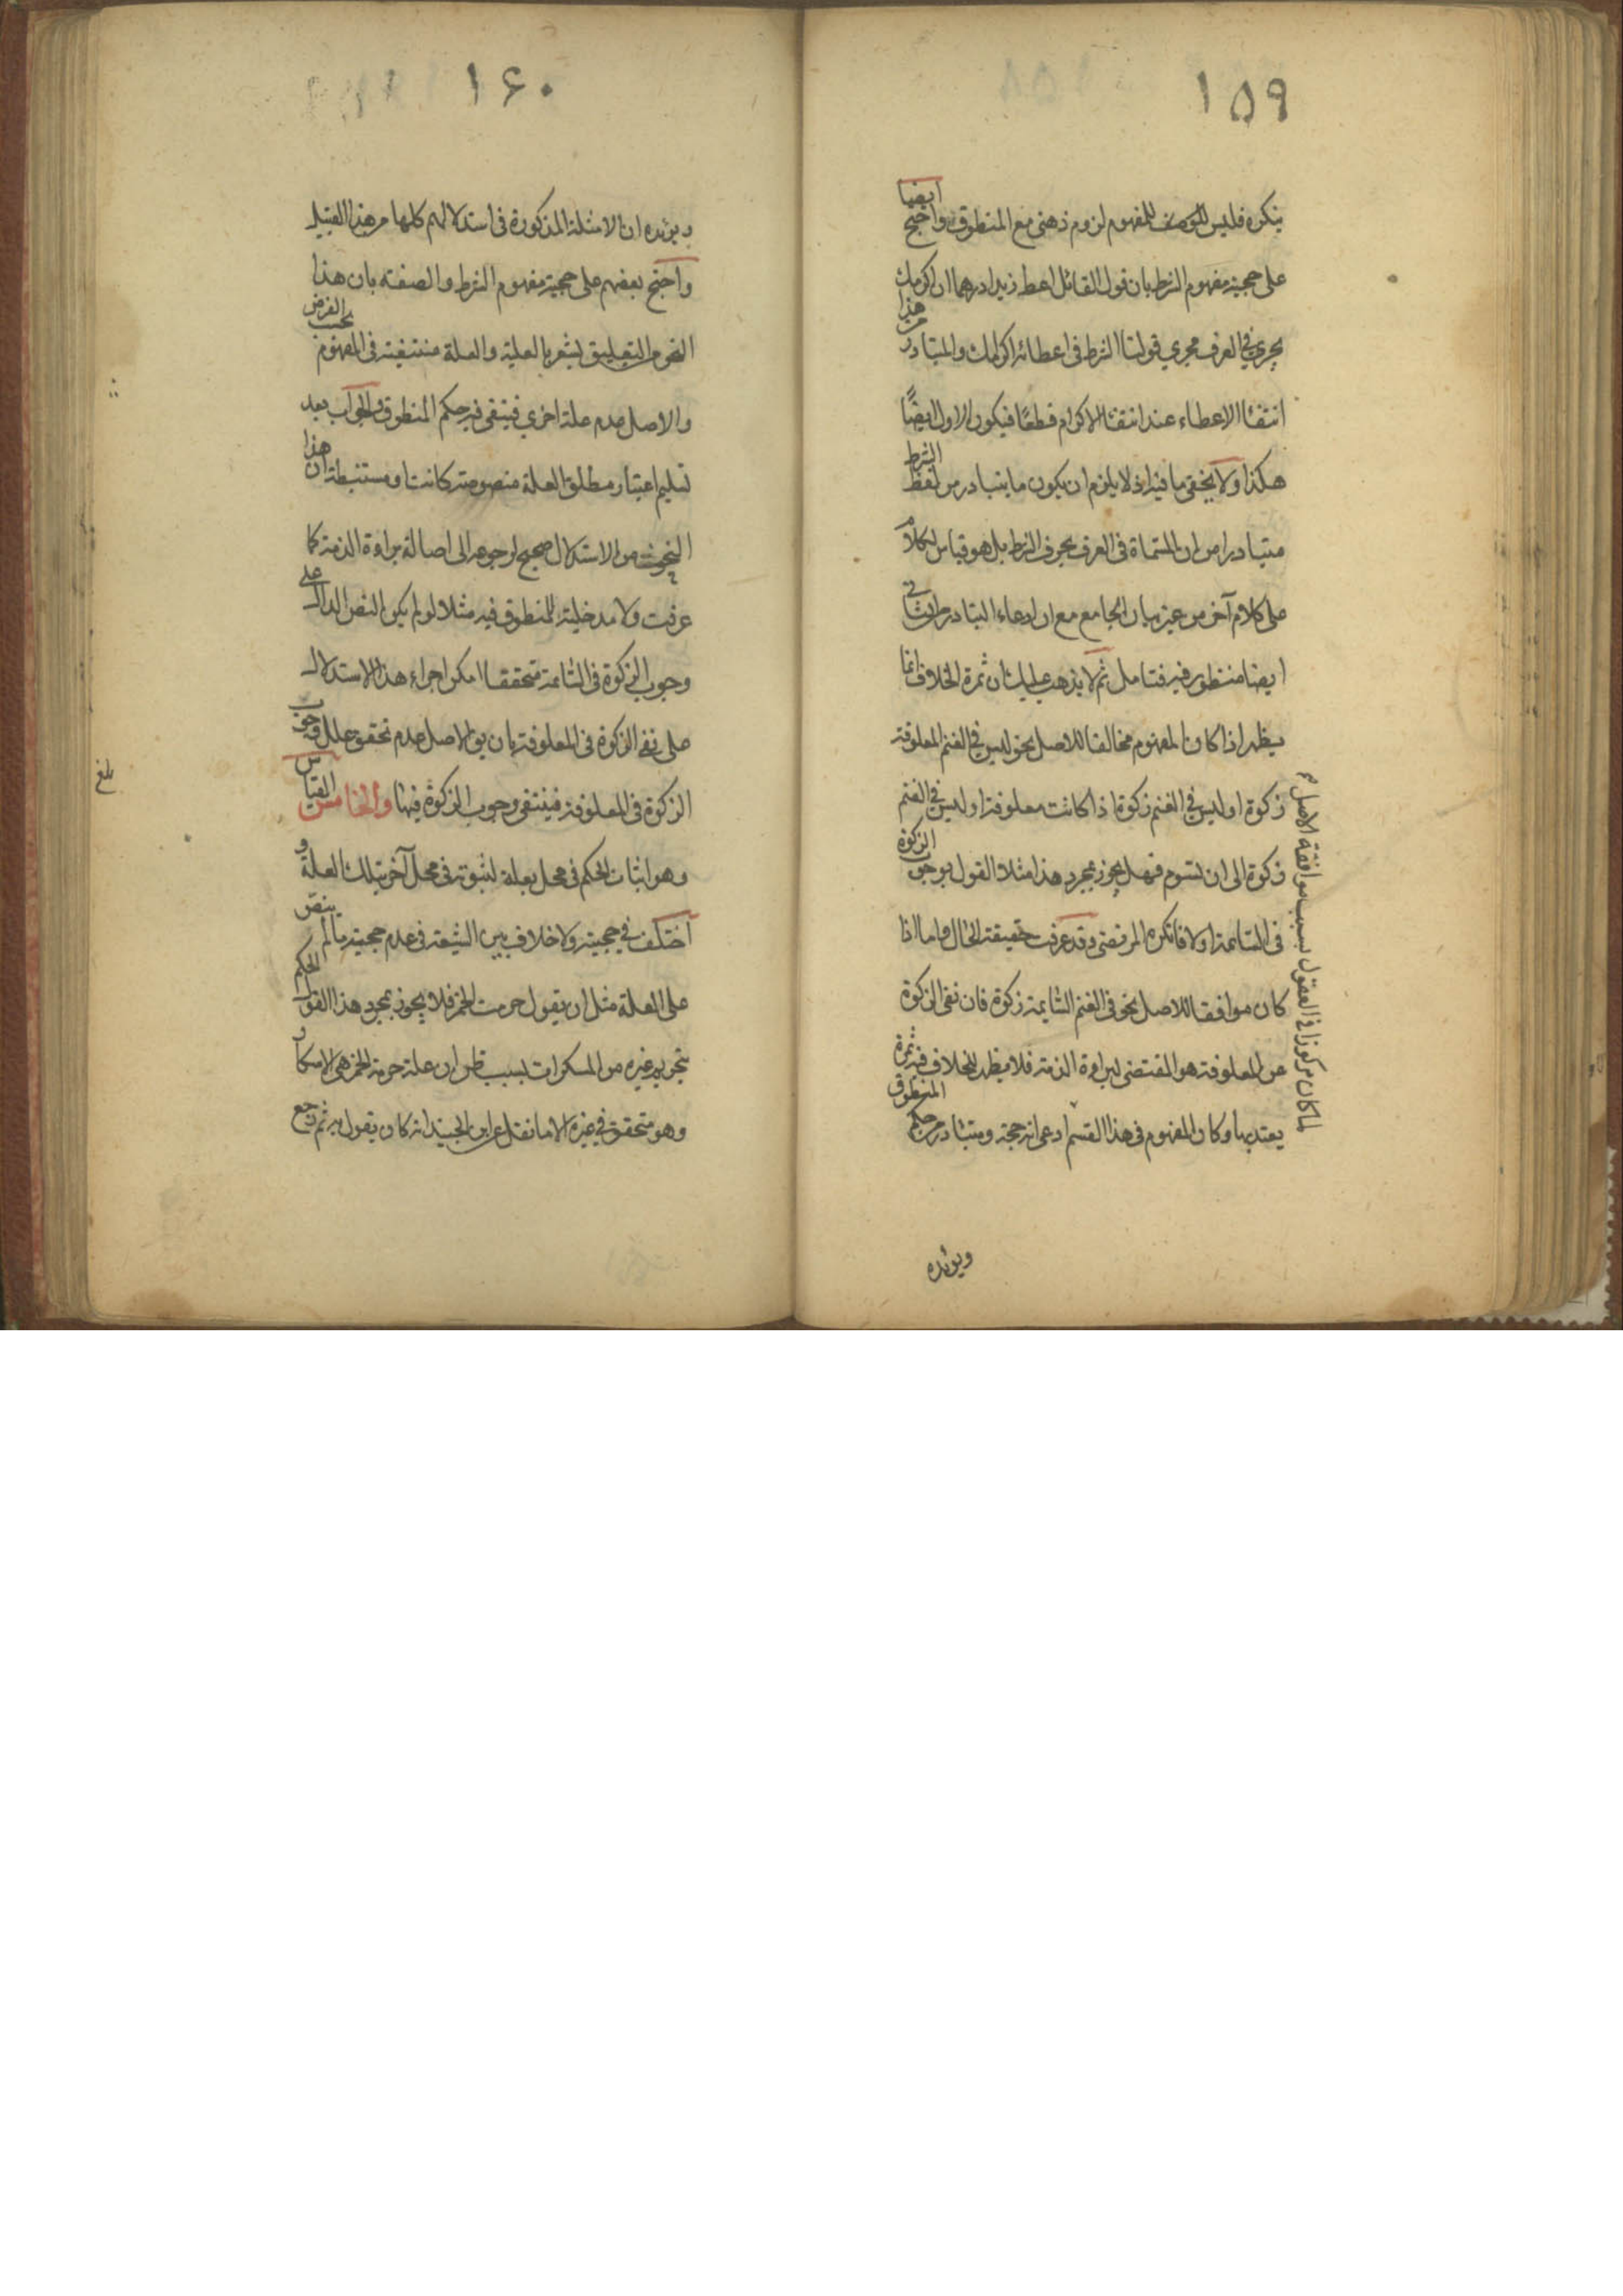 ١٥٩
ينكره فليس للوصف للمفهوم لزوم ذهنى مع المنطوق واحتج ايضا
على حجية مفهوم الشرط بان قول القائل اعط زيدا درهما ان اكرمك
يجرى في العرف مجرى قولنا الشرط فى اعطائه اكرامك والمتبادر من هذا
انتفا الاعطاء عند انتفا الاكرام قطعًا فيكون الاول ايضًا
هكذا ولا يخفى ما فيه اذ لا يلزم ان يكون ما يتبادر من لفظ الشرط
متبادرا من ان المسماة فى العرف بحرف الشرط بل هو قياس لكلام
على كلام آخر من غير بيان الجامع مع ان ادعاء التبادر من الثانى
ايضا منظور فيه فتامل ثم لا يذهب عليك ان ثمرة الخلاف انما
يظهر اذا كان المفهوم مخالفا للاصل نحو ليس في الغنم المعلوفة
زكوة او ليس في الغنم زكوة اذا كانت معلوفة او ليس في الغنم
زكوة الى ان تسوم فهل يجوز بمجرد هذا مثلا القول بوجوب الزكوة
فى السايمة اولا فانكره المرتضى وقد عرفت حقيقة الحال واما اذا
كان موافقا للاصل نحو فى الغنم السايمة زكوة فان نفى الزكوة
عن المعلوفة هو المقتضى لبراءة الذمة فلا يظهر للخلاف فيه ثمرة
يعتد بها وكان المفهوم فى هذا القسم ادعى انه حجة ومتبادر من حكم المنطوق
لما كان مركوزا في العقول بسبب موافقة الاصل
ويؤيده
١٦٠
ويؤيده ان الامثلة المذكورة فى استدلالهم كلها من هذا القبيل
واحتج بعضهم على حجية مفهوم الشرط والصفة بان هذا
النحو من التعليق يشعر بالعلية والعلة منتفية فى المفهوم بحسب الفرض
والاصل عدم علة اخرى فينتفى فيه حكم المنطوق والجواب بعد
تسليم اعتبار مطلق العلة منصوصة كانت او مستنبطة ان هذا
النحو من الاستدلال صحيح لرجوعه الى اصالة براءة الذمة كما
عرفت ولا مدخلية للمنطوق فيه مثلا لو لم يكن النص الدال على
وجوب الزكوة فى السايمة متحققا امكن اجراء هذا الاستدلال
على نفى الزكوة فى المعلوفة بان يق الاصل عدم تحقق علل وجوب
الزكوة فى المعلوفة فينتفى وجوب الزكوة فيها والخامس القياس
وهو اثبات الحكم فى محل بعلة لثبوته فى محل آخر بتلك العلة و
اختلف في حجيته ولا خلاف بين الشيعة فى عدم حجية ما لم ينص
على العلة مثل ان يقول حرمت الخمر فلا يجوز بمجرد هذا القول الحكم
بتحريم غيره من المسكرات بسبب ظن ان علة حرمة الخمر هى الاسكار
وهو متحقق في غيره الا ما نقل عن ابن الجنيد انه كان يقول به ثم رجع
بلغ